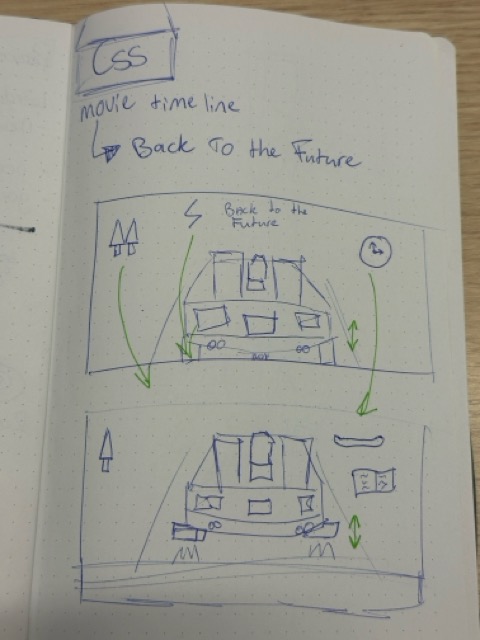 CSS
movie timeline
Back To the Future
Back to the
Future